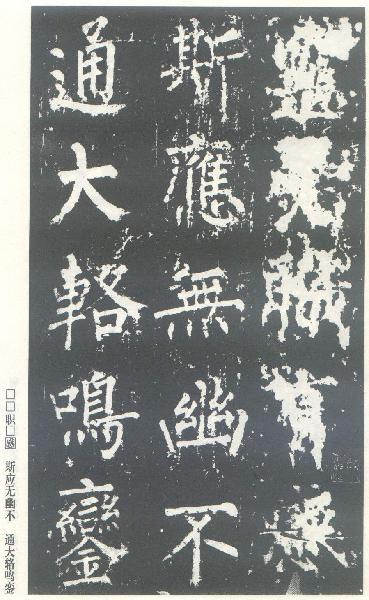 職
斯應無幽不
通大輅鳴鑾
□□职□ 斯应无幽不 通大辂鸣銮